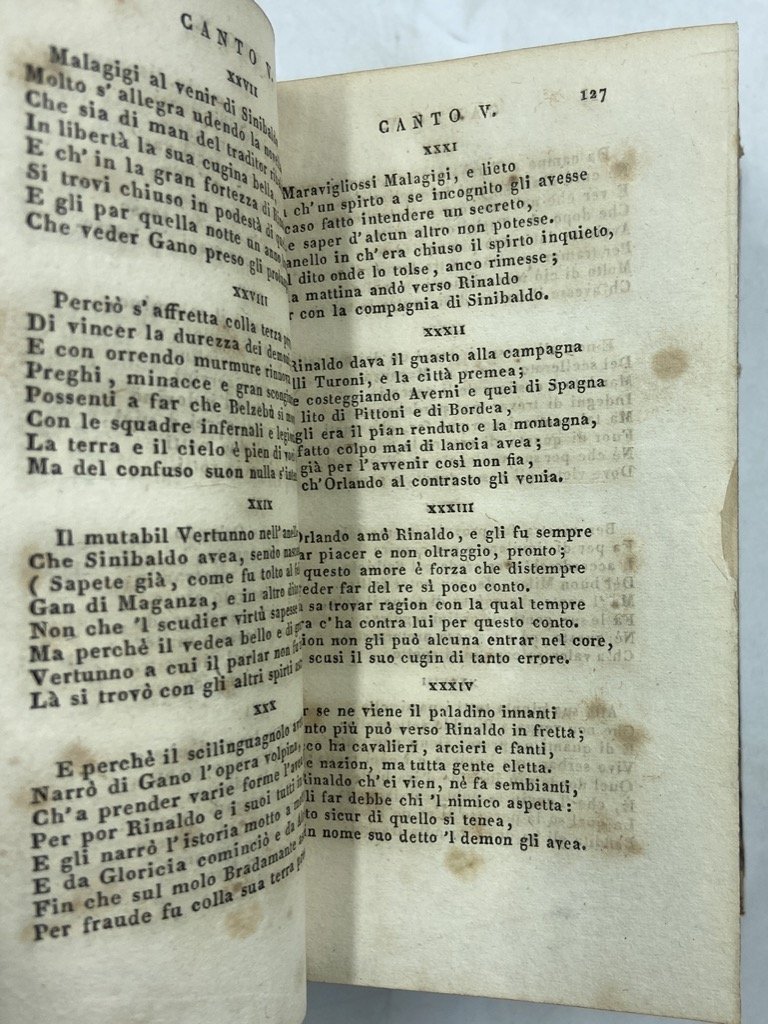 CANTO V.
XXVII
Malagigi al venir di Sinibaldo
Molto s'allegra udendo la
Che sia di man del traditor
In libertà la sua cugina bella,
E ch'in la gran fortezza di
Si trovi chiuso in podestà di
E gli par quella notte un anno
Che veder Gano preso gli
XXVIII
Perciò s'affretta colla terza
Di vincer la durezza dei
E con orrendo murmure
Preghi, minacce e gran
Possenti a far che Belzebù si
Con le squadre infernali e
La terra e il cielo è pien di
Ma del confuso suon nulla
XXIX
Il mutabil Vertunno nell'
Che Sinibaldo avea, sendo
( Sapete già, come fu tolto al
Gan di Maganza, e in altro
Non che 'l scudier virtù
Ma perchè il vedea bello e di
Vertunno a cui il parlar non
Là si trovò con gli altri spirti
XXX
E perchè il scilinguagnolo
Narrò di Gano l'opera volpina,
Ch'a prender varie forme
Per por Rinaldo e i suoi tutti
E gli narrò l'istoria motto a
E da Gloricia cominciò e
Fin che sul molo Bradamante
Per fraude fu colla sua terra
CANTO V. 127
XXXI
Maravigliossi Malagigi, e lieto
ch'un spirto a se incognito gli avesse
caso fatto intendere un secreto,
e saper d'alcun altro non potesse.
anello in ch'era chiuso il spirto inquieto,
l dito onde lo tolse, anco rimesse;
a mattina andò verso Rinaldo
r con la compagnia di Sinibaldo.
XXXII
Rinaldo dava il guasto alla campagna
lli Turoni, e la città premea;
e costeggiando Averni e quei di Spagna
lito di Pittoni e di Bordea,
gli era il pian renduto e la montagna,
fatto colpo mai di lancia avea;
già per l'avvenir così non fia,
ch'Orlando al contrasto gli venia.
XXXIII
Orlando amò Rinaldo, e gli fu sempre
ar piacer e non oltraggio, pronto;
questo amore è forza che distempre
eder far del re sì poco conto.
sa trovar ragion con la qual tempre
ra c'ha contra lui per questo conto.
ion non gli può alcuna entrar nel core,
scusi il suo cugin di tanto errore.
XXXIV
r se ne viene il paladino innanti
nto più può verso Rinaldo in fretta;
co ha cavalieri, arcieri e fanti,
e nazion, ma tutta gente eletta.
Rinaldo ch'ei vien, nè fa sembianti,
li far debbe chi 'l nimico aspetta:
to sicur di quello si tenea,
n nome suo detto 'l demon gli avea.